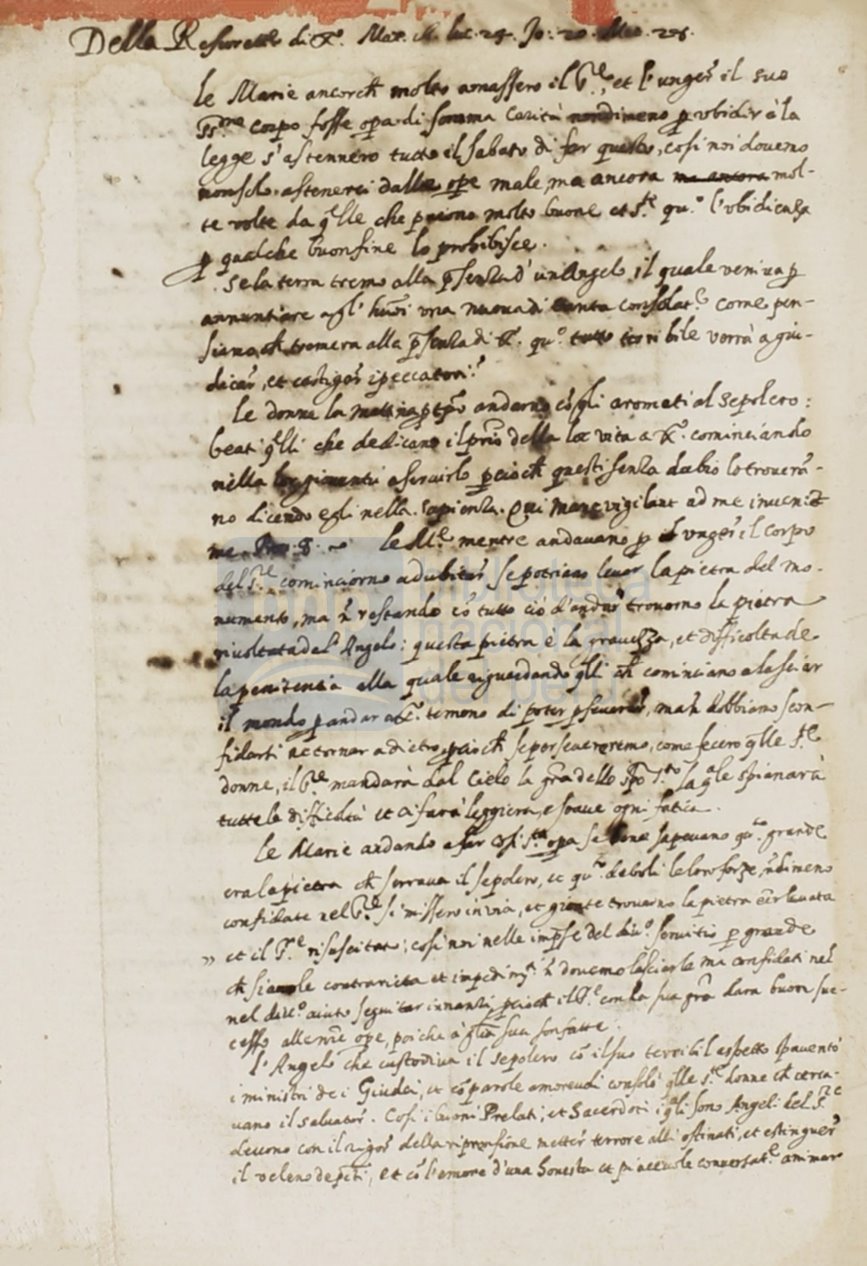 Della Resurrett.e di X.o Mar. Luc 24. Jo: 20. Mat. 28.
le Marie ancorch molto amassero il S.re, et l'unger il suo
SS.mo corpo fosse opa di somma carità nondimeno p obidir à la
legge s'astennero tutto il sabato di far questo, cosi noi dovemo
non solo astenerci dalle ope male, ma ancora ma ancora mol-
te volte da qlle che paiono molto buone et s.te qu.o l'obidienza
p qualche buon fine lo prohibisce.
Se la terra tremo alla psenza d'un Angelo, il quale veniva p
annuntiare agl' huoi una nuova di tanta consolat.e come pen-
siamo ch tremera alla psenza di X.o qu.o tutto terribile verrà a giu-
dicar, et castigar i peccatori?
Le donne la mattina p tpo andarno co gli aromati al sepolcro:
beati qlli che dedicano il prio della loro vita a X.o cominciando
nella lor gioventù a servirlo pcioch questi senza dubio lo troverà-
no dicendo egli nella sapienza. Qui mane vigilant ad me invenient
me. Pro. 8. le M.e mentre andavano p unger il corpo
del S.re cominciorno a dubitar se potriano levar la pietra del mo-
numento, ma n restando co tutto ciò d'andar trovorno la pietra
rivoltata dal Angelo: questa pietra è la gravezza, et difficoltà de
la penitenza alla quale riguardando qlli ch cominciano a lasciar
il mondo p andar a X.o temono di poter pseverar, ma n dobbiamo scon-
fidarsi ne tornar a dietro pcioch se perseveraremo, come fecero qlle s.te
donne, il S.re mandarà dal Cielo la gra dello Spo S.to la qle spianarà
tutte le difficoltà et ci farà leggiera, e soave ogni fatica.
Le Marie andando a far qsta s.ta opa se bene sapevano qu.to grande
era la pietra ch serrava il sepolcro, et qu.to deboli le loro forze, ndimeno
confidate nel S.re si missero in via, et gionte trovarno la pietra esser levata
et il S.re risuscitato; cosi noi nelle imprse del div.o servitio p grande
ch siano le contrarietà et impedim.ti n dovemo lasciarle ma confidati nel
nel div.o aiuto seguitar innanti pcioch il S.re con la sua gra dara buon suc-
cesso alle nre ope, poiche a gloria sua son fatte.
L'Angelo che custodiva il sepolcro co il suo terribil aspetto spaventò
i ministri de i Giudei, et co parole amorevoli consolò qlle s.te donne ch cerca-
vano il salvator. Cosi i buoni Prelati, et Sacerdoti i qli sono Angeli del S.re
devono con il rigor della riprensione metter terrore alli ostinati, et estinguer
il veleno de pcti, et co l'amore d'una honesta et piacevole conversat.e animare